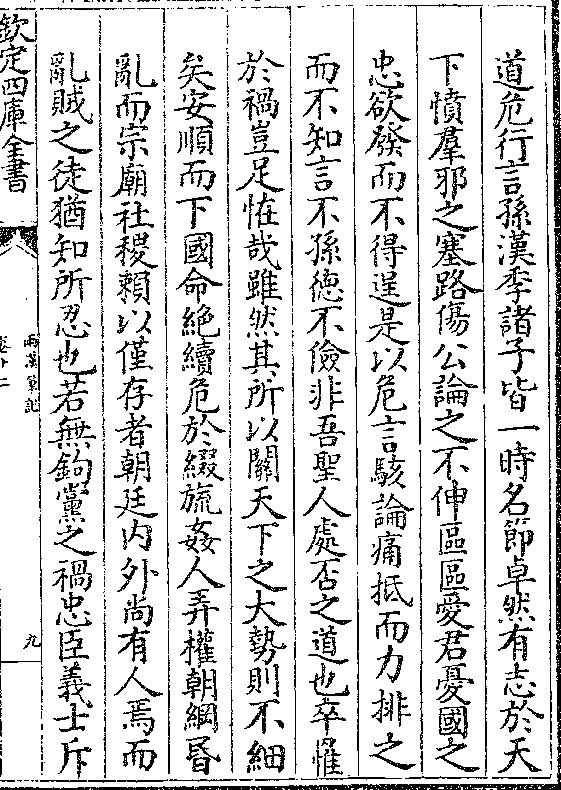 道危行言孫漢季諸子皆一時名節卓然有志於天
下憤羣邪之塞路傷公論之不伸區區愛君憂國之
忠欲發而不得逞是以危言駭論痛抵而力排之
而不知言不孫德不儉非吾聖人處否之道也卒罹
於禍豈足恠哉雖然其所以關天下之大勢則不細
矣安順而下國命絶續危於綴旒姦人弄權朝綱昬
亂而宗廟社稷頼以僅存者朝廷内外尚有人焉而
亂賊之徒猶知所忍也若無鉤黨之禍忠臣義士斥
欽定四庫全書
兩漢筆記
卷十二
九